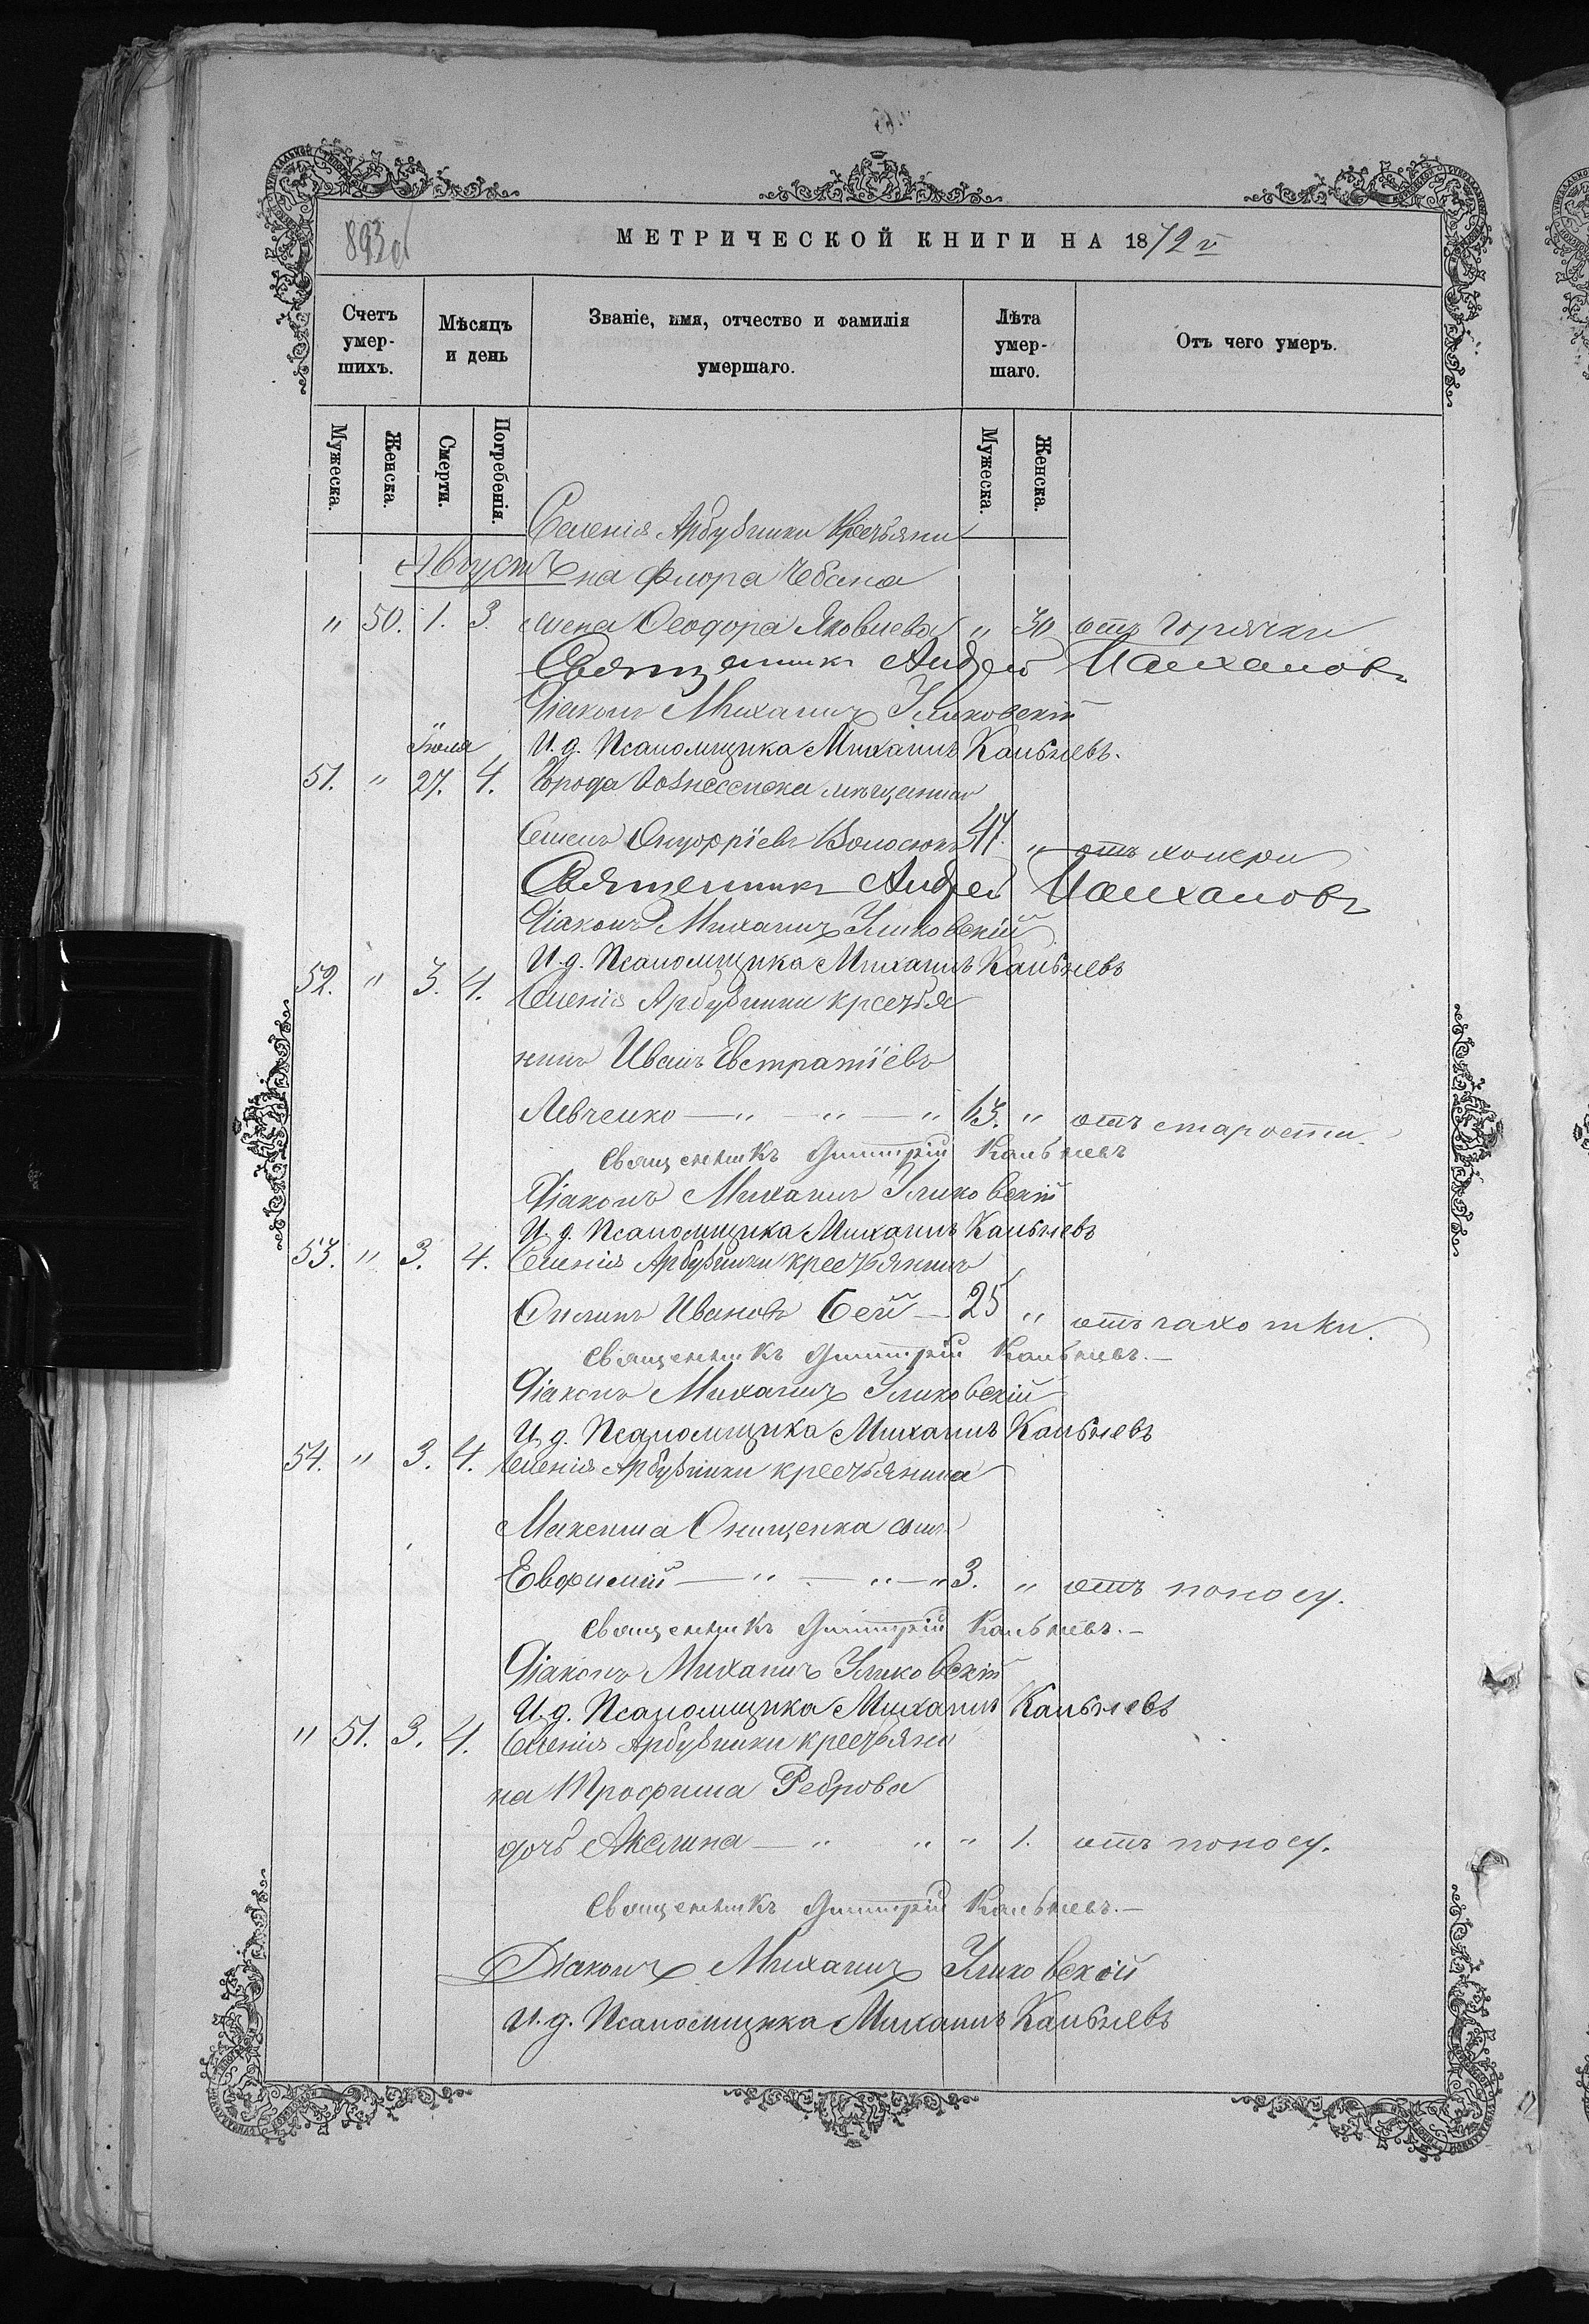 893об
МЕТРИЧЕСКОЙ КНИГИ НА 1872 г.
Счетъ умер-шихъ.
Мѣсяцъ и день
Званіе, имя, отчество и фамилія умершаго.
Лѣта умер-шаго.
Отъ чего умеръ.
Мужеска. Женска. Смерти. Погребенія. Мужеска. Женска.
Селенія Арбузинки Крестьяни
Августъ на Флора Чебана
" 50. 1. 3. жена Ѳеодора Яковлева " 30 отъ горячки
Священникъ Андрей
Діаконъ Михаилъ
Іюля И. д. Псаломщика Михаилъ Кальневъ.
51. " 27. 4. Города Вознесенска мѣщанинъ
Семенъ Онуфріевъ Волосюкъ 47. " отъ холеры
Священникъ Андрей
Діаконъ Михаилъ
И. д. Псаломщика Михаилъ Кальневъ
52. " 3. 4. Селенія Арбузинки крестья
нинъ Иванъ Евстратіевъ
Левченко — " — " — " 63. " отъ старости.
Священникъ Димитрій Кальневъ
Діаконъ Михаилъ
И. д. Псаломщика Михаилъ Кальневъ
53. " 3. 4. Селенія Арбузинки крестьянинъ
Иванъ Бей — 25 " отъ чахотки.
Священникъ Димитрій Кальневъ.—
Діаконъ Михаилъ
И. д. Псаломщика Михаилъ Кальневъ
54. " 3. 4. Селенія Арбузинки крестьянина
Максима Онищенка сынъ
Евфимій — " — " — " 3. " отъ поносу.
Священникъ Димитрій Кальневъ.—
Діаконъ Михаилъ
И. д. Псаломщика Михаилъ Кальневъ
" 51. 3. 4. Селенія Арбузинки крестьяни
на Трофима Реброва
дочь Акелина — " " " 1. отъ поносу.
Священникъ Димитрій Кальневъ.—
Діаконъ Михаилъ
И. д. Псаломщика Михаилъ Кальневъ